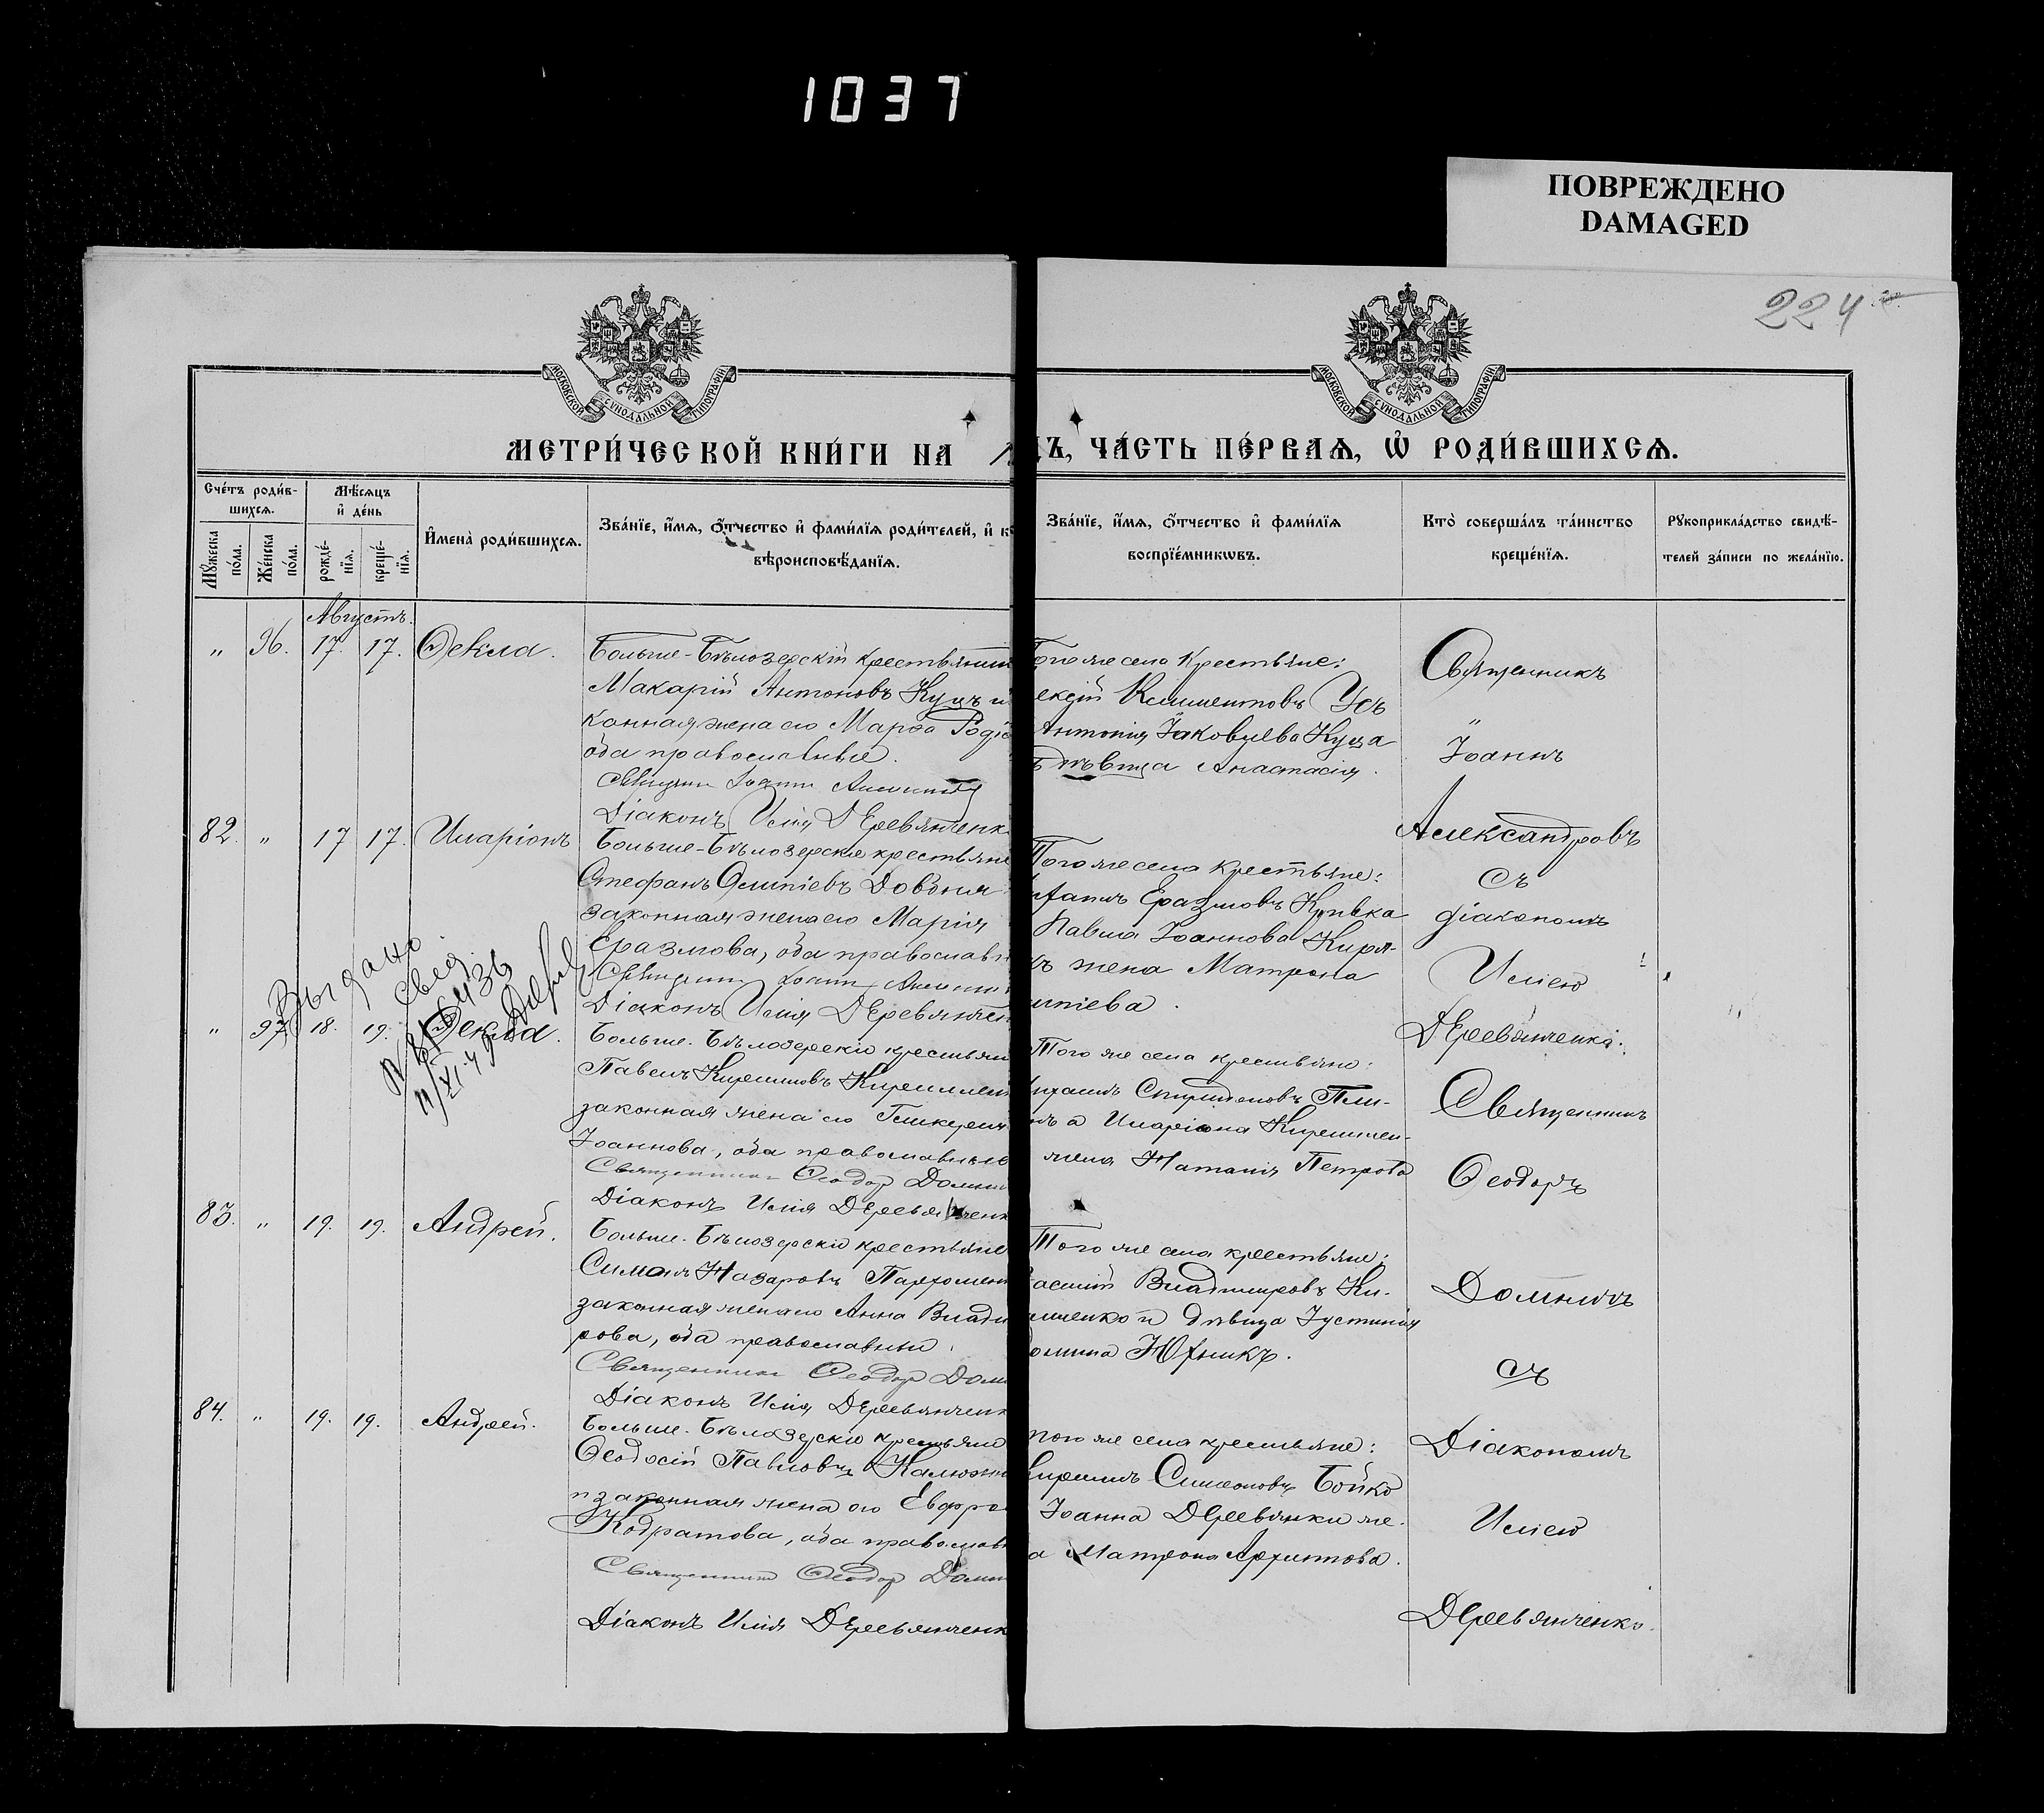 1037
ПОВРЕЖДЕНО
DAMAGED
224
МОСКОВСКОЙ СѴНОДАЛЬНОЙ ТИПОГРАФІИ
МОСКОВСКОЙ СѴНОДАЛЬНОЙ ТИПОГРАФІИ
МЕТРИ́ЧЕСКОЙ КНИ́ГИ НА
ДЪ, ЧА́СТЬ ПЕ́РВАѦ, Ѿ РОДИ́ВШИХСѦ.
Сче́тъ роди́в-
шихсѧ.
Мѣ́сѧцъ
и҆ де́нь
Мꙋ́жеска по́ла.
Же́нска по́ла.
рожде́-
нїѧ.
креще́-
нїѧ.
И҆мена̀ роди́вшихсѧ.
Зва́нїе, и҆́мѧ, ѻ҆́тчество и҆ фами́лїѧ роди́телей, и҆ к
вѣроисповѣ́данїѧ.
Зва́нїе, и҆́мѧ, ѻ҆́тчество и҆ фами́лїѧ
воспрїе́мникѡвъ.
Кто̀ соверша́лъ та́инство
креще́нїѧ.
Рꙋкоприкла́дство свидѣ́-
телей за́писи по жела́нїю.
Августъ.
" 96. 17. 17. Ѳекла.
Больше-Бѣлозерскій крестьянин
Макарій Антоновъ Куцъ и
конная жена его Марѳа Родіо
оба православные.
Священ Іоаннъ
Діаконъ Илія Деревянченк
Того же села крестьяне:
ексій Климентовъ Усъ
Антонія Іаковлева Куца
дѣвица Анастасія.
Священникъ
"
Іоаннъ
Александровъ
съ
діакономъ
Иліею
Деревянченко.
82. " 17 17. Иларіонъ
Больше-Бѣлозерскіе крестьяне
Стефанъ Осипіевъ Довбня
законная жена его Марія
Еразмова, оба православн
Священ Іоаннъ
Діаконъ Илія Деревянчен
Того же села крестьяне:
хаилъ Еразмовъ Кривка
Павла Іоаннова Киря-
къ жена Матрона
ипіева.
Выдано
свид.
" 97. 18. 19. Ѳекла.
Больше-Бѣлозерскіе крестьян
Павелъ Кирилловъ Кириллен
законная жена его Гликерія
Іоаннова, оба православные
Священникъ Ѳеодор Домни
Діаконъ Илія Деревянченк
Того же села крестьяне:
ихаилъ Спиридоновъ Пли-
Иларіона Кириллен-
жена Наталія Петрова
Священникъ
Ѳеодоръ
Домничъ
съ
Діакономъ
Иліею
Деревянченко.
83. " 19. 19. Андрей.
Больше-Бѣлозерскіе крестьяне
Симонъ Назаровъ Пархомен
законная жена его Анна Влади
рова, оба православные.
Священникъ Ѳеодор Домн
Діаконъ Илія Деревянченк
Того же села крестьяне:
асилій Владимировъ Ки-
иленко и дѣвица Іустинія
омина Юхникъ.
84. " 19. 19. Андрей.
Больше-Бѣлозерскіе крестьяне
Ѳеодосій Павловъ Калюжн
и законная жена его Евфро
Кодратова, оба православн
Священникъ Ѳеодор Домн
Діаконъ Илія Деревянченк
того же села крестьяне:
Кириллъ Симоновъ Бойко
Іоанна Деревянки же-
а Матрона Архиппова.